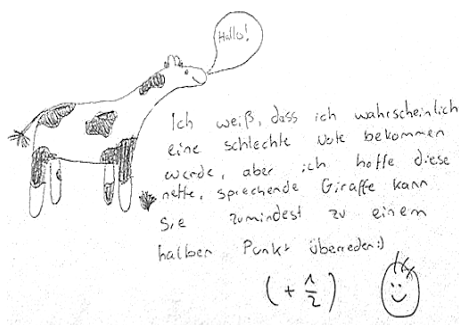 Hallo!
Ich weiß, dass ich wahrscheinlich
eine schlechte Note bekommen
werde, aber ich hoffe diese
nette, sprechende Giraffe kann
Sie zumindest zu einem
halben Punkt überreden:)
(+ 1/2)